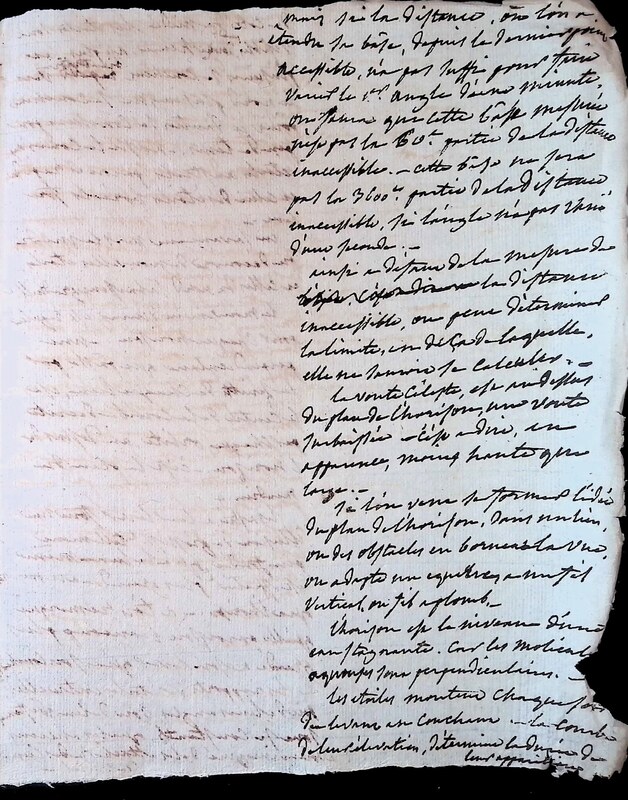 mais si la distance, où l'on a
étendu sa base, depuis le dernier point
accessible, n'a pas suffi pour faire
varier le 1er angle d'une minute,
on saura que cette base mesurée
n'est pas la 60e partie de la distance
inaccessible. — cette base ne sera
pas la 3600e partie de la distance
inaccessible, si l'angle n'a pas varié
d'une seconde. —
ainsi a défaut de la mesure de
la distance
inaccessible, on peut déterminer
la limite, en deça de laquelle,
elle ne sauroit se calculer. —
la voute céleste, est au dessus
du plan de l'horison, une voute
surbaissée — c'est a dire, en
apparence, moins haute que
large. —
si l'on veut se former l'idée
du plan de l'horison, dans un lieu,
ou des obstacles en bornent la vue,
on adapte une equerre, a un fil
vertical, ou fil a plomb. —
l'horison est le niveau d'une
eau stagnante. Car les molécul
aqueuses sont perpendiculaires. —
les etoiles montent chaque jour
du levant au couchant — la courbe
de leur élévation, détermine la durée de
leur apparition